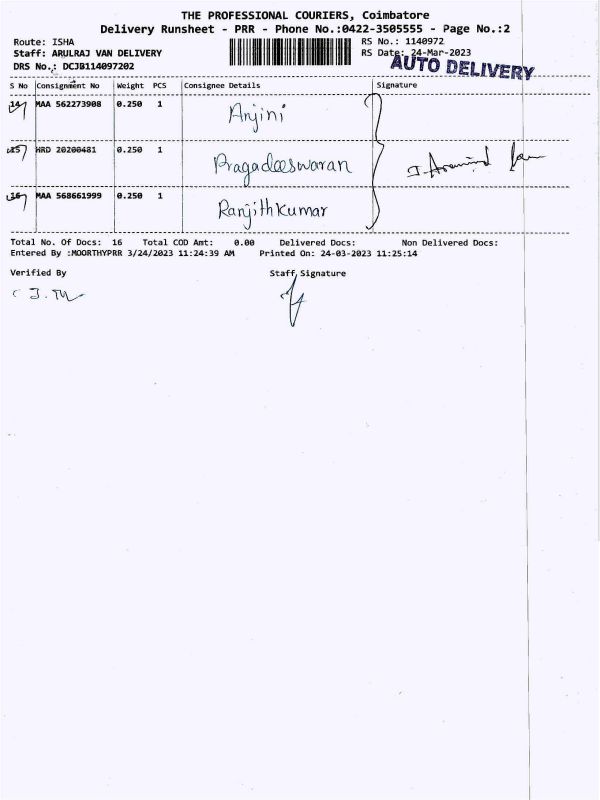 THE PROFESSIONAL COURIERS, Coimbatore
Delivery Runsheet - PRR - Phone No.:0422-3505555 - Page No.:2
Route: ISHA
RS No.: 1140972
Staff: ARULRAJ VAN DELIVERY
RS Date: 24-Mar-2023
DRS No.: DCJB114097202
AUTO DELIVERY
S No Consignment No Weight PCS Consignee Details Signature
14 MAA 562273908 0.250 1 Anjini
15 HRD 20200481 0.250 1 Pragadeeswaran
16 MAA 568661999 0.250 1 Ranjith Kumar
Total No. Of Docs: 16 Total COD Amt: 0.00 Delivered Docs: Non Delivered Docs:
Entered By :MOORTHYPRR 3/24/2023 11:24:39 AM Printed On: 24-03-2023 11:25:14
Verified By Staff Signature